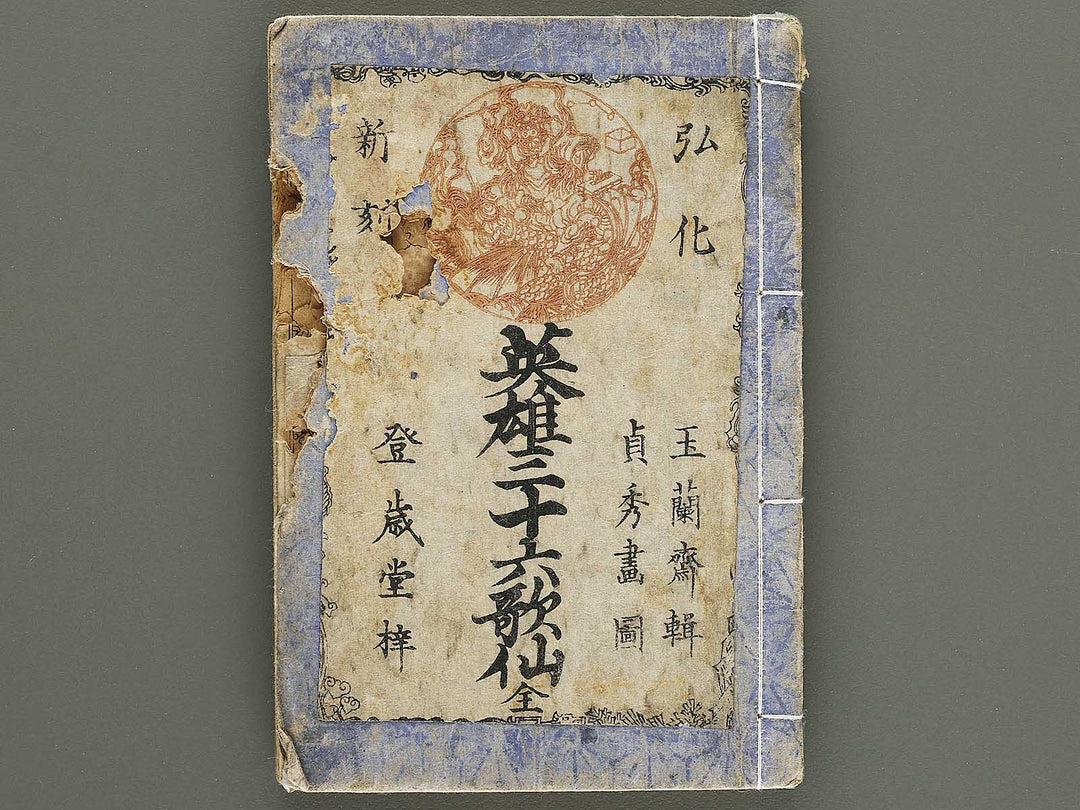 弘化
玉蘭齋輯
貞秀畫圖
英雄三十六歌仙全
新刻
登歳堂梓